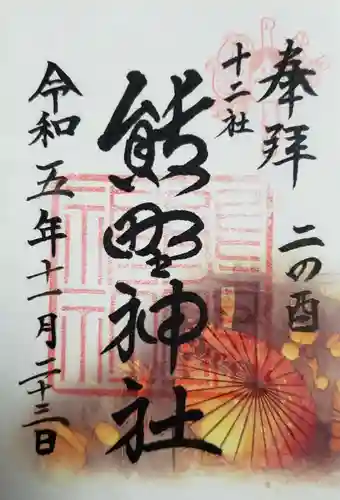 奉拝 二の酉
十二社
熊野神社
令和五年十一月二十三日